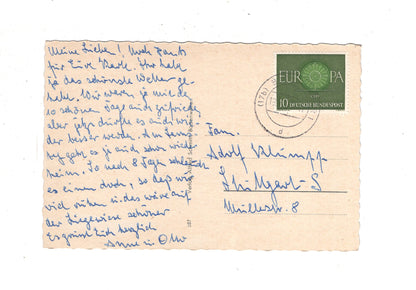 Meine Lieben! Noch Dank
für Eure Karte. Ihr habt
ja das schönste Wetter ge-
habt. Wir waren ja mit den
10 schönen Tagen auch zufrieden
aber jetzt dürfte es auch wie-
der besser werden. Am
geht es ja auch schon wieder
heim. So nach 8 Tagen
es einem doch, so daß wir
viel ruhen u. das wäre auf
der Liegewiese schöner
Es grüßt Euch herzlich
Anne u. Otto
EUROPA
CEPT
10 DEUTSCHE BUNDESPOST
(17b)
Fam.
Adolf Klumpp
Stuttgart-S
Müllerstr. 8